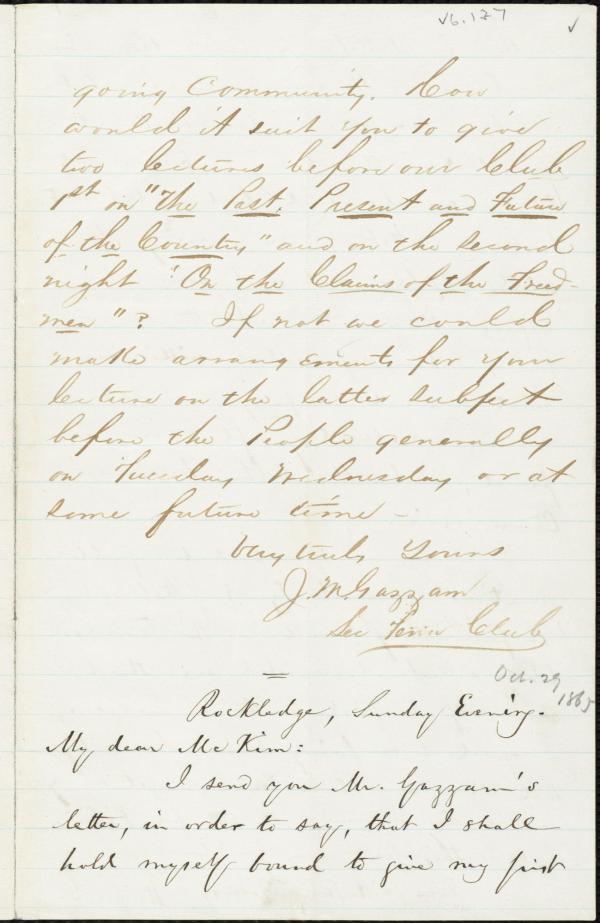 √6.127 ✓
going Community. How
would it suit you to give
two lectures before our Club
1st on "The Past, Present and Future
of the Country," and on the second
night "On the Claims of the Freed-
men"? If not we could
make arrangements for your
lecture on the latter subject
before the People generally
on Tuesday Wednesday or at
some future time –
Very truly Yours
J. M. Gazzam
Sec Club
Oct. 29
1865
Rockledge, Sunday Evening.
My dear McKim:
I send you Mr. Gazzam's
letter, in order to say, that I shall
hold myself bound to give my first